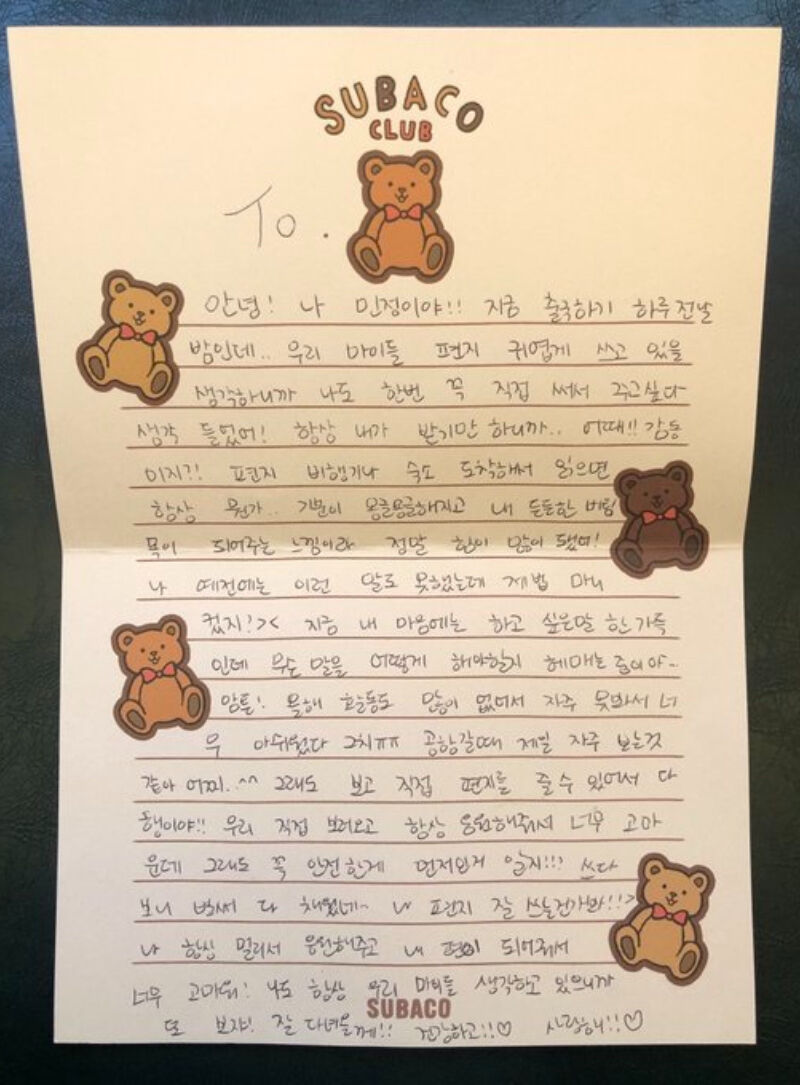 SUBACO
CLUB
To.
안녕! 나 민정이야!! 지금 출국하기 하루 전날
밤인데.. 우리 마이들 편지 귀엽게 쓰고 있을
생각하니까 나도 한번 꼭 직접 써서 주고싶다
생각 들었어! 항상 내가 받기만 하니까.. 어때!! 감동
이지?! 편지 비행기나 숙소 도착해서 읽으면
항상 뭔가.. 기분이 몽글몽글해지고 내 든든한 버팀
목이 되어주는 느낌이라 정말 힘이 많이 됐어!
나 예전에는 이런 말도 못했는데 제법 마니
컸지!>< 지금 내 마음에는 하고 싶은말 한가득
인데 무슨 말을 어떻게 해야할지 헤매는 중이야~
암튼! 올해 활동도 많이 없어서 자주 못봐서 너
무 아쉬웠다 그치ㅠㅠ 공항갈때 제일 자주 보는것
같아 어찌..^^ 그래도 보고 직접 편지를 줄 수 있어서 다
행이야!! 우리 직접 보러오고 항상 응원해줘서 너무 고마
운데 그래도 꼭 안전한게 먼저인거 알지!!! 쓰다
보니 벌써 다 채웠네~ 나 편지 잘 쓰는건가봐!!>
나 항상 멀리서 응원해주고 내 편이 되어줘서
너무 고마워! 나도 항상 우리 마이들 생각하고 있으니까
SUBACO
또 보쟈! 잘 다녀올께!! 건강하고!!♡ 사랑해!!♡